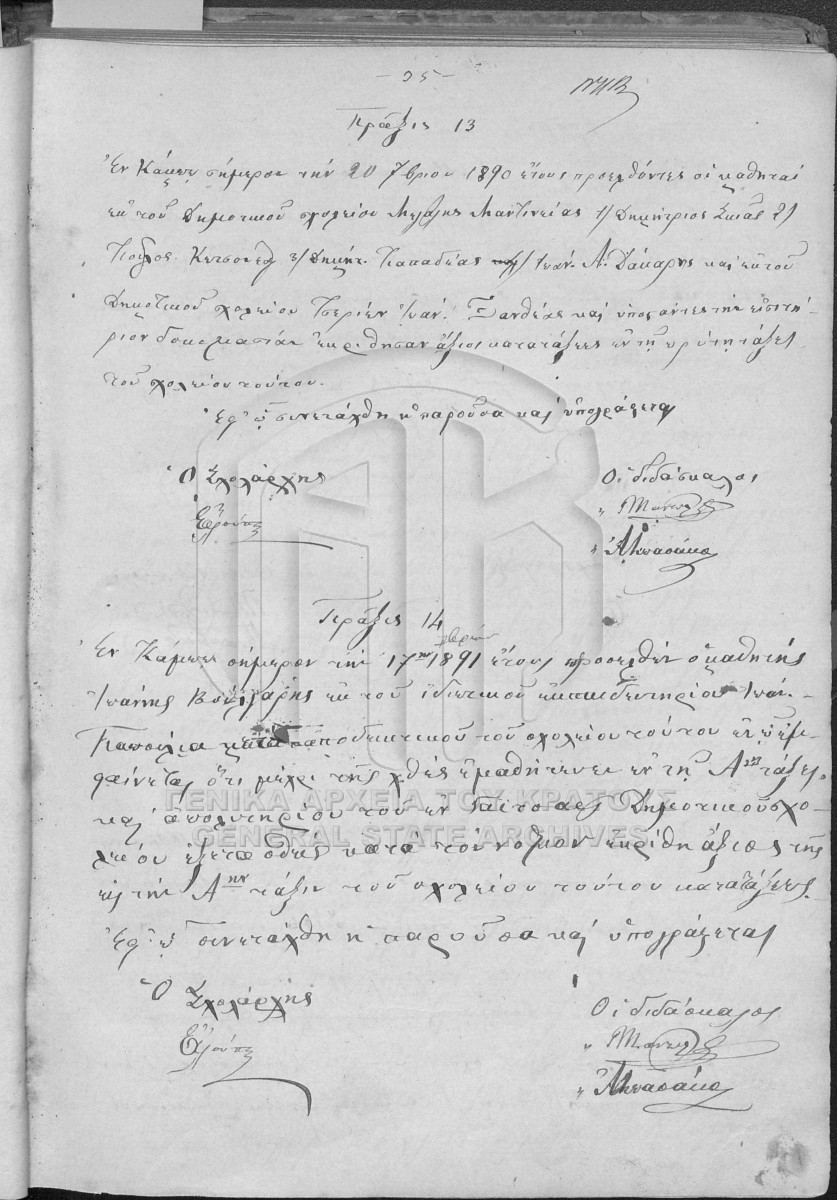 - 25 -
Πρᾶξις 13
Ἐν Κάμπῳ σήμερον τὴν 20 7βρίου 1890 ἔτους προσελθόντες οἱ μαθηταὶ
ἐκ τοῦ Δημοτικοῦ σχολείου Μεγάλης Μαντινείας 1/ Δημήτριος 2/
3/ Δημήτ. Παπαδέας Ἰωάν. Α. Δάκαρης καὶ ἐκ τοῦ
Δημοτικοῦ σχολείου Τσερίων Ἰωάν. Ξανθέας καὶ ὑποστάντες τὴν εἰσιτή-
ριον δοκιμασίαν ἐκρίθησαν ἄξιοι κατατάξεως ἐν τῇ πρώτῃ τάξει
τοῦ σχολείου τούτου.
Ἐφ' ᾧ συνετάχθη ἡ παροῦσα καὶ ὑπογράφεται
Ὁ Σχολάρχης
Οἱ διδάσκαλοι
Πρᾶξις 14
Ἐν Κάμπῳ σήμερον τὴν 17ην 1891 ἔτους προσελθὼν ὁ μαθητὴς
Ἰωάννης Βούλγαρης ἐκ τοῦ ἰδιωτικοῦ ἐκπαιδευτηρίου Ἰωάν.
Παπούλια ἀποδεικτικοῦ τοῦ σχολείου τούτου ἐν ᾧ ἐμ-
φαίνεται ὅτι μέχρι τῆς χθὲς ἐμαθήτευεν ἐν τῇ Αῃ τάξει
καὶ ἀπολυτηρίου τοῦ ἐν Δημοτικοῦ σχο-
λείου ἐξετασθεὶς κατὰ τὸν νόμον ἐκρίθη ἄξιος τῆς
εἰς τὴν Αην τάξιν τοῦ σχολείου τούτου κατατάξεως.
Ἐφ' ᾧ συνετάχθη ἡ παροῦσα καὶ ὑπογράφεται
Ὁ Σχολάρχης
Οἱ διδάσκαλοι
ΓΕΝΙΚΑ ΑΡΧΕΙΑ ΤΟΥ ΚΡΑΤΟΥΣ
GENERAL STATE ARCHIVES